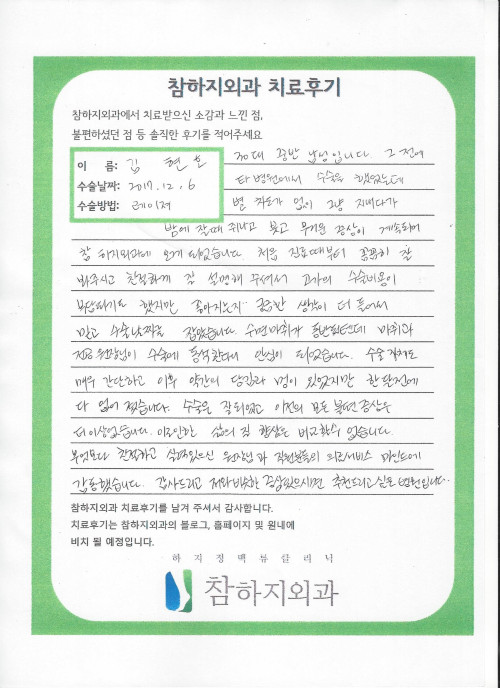 참하지외과 치료후기
참하지외과에서 치료받으신 소감과 느낀 점,
불편하셨던 점 등 솔직한 후기를 적어주세요
이 름: 김 현 호
수술날짜: 2017. 12. 6
수술방법: 레이저
30대 중반 남성입니다. 그 전에
타병원에서 수술을 했었는데
별 차도가 없이 그냥 지내다가
밤에 잘때 쥐나고 붓고 무거운 증상이 계속되어
참 하지외과에 오게 되었습니다 처음 진료때부터 꼼꼼히 잘
봐주시고 친절하게 잘 설명해 주셔서 고가의 수술비용이
부담되기도 했지만 좋아지는지.. 궁금한 생각이 더 들어서
믿고 수술날짜를 잡았습니다 수면마취가 동반되었는데 마취과
전문 원장님이 수술에 동석한다니 안심이 되었습니다. 수술 자체도
매우 간단하고 이후 약간의 당김과 멍이 있었지만 한달전에
다 없어 졌습니다. 수술은 잘되었고 이전의 모든 불편 증상은
더이상없습니다. 이로인한 삶의 질 향상은 비교할수 없습니다.
무엇보다 친절하고 실력있으신 원장님과 직원분들의 의료서비스 마인드에
감동했습니다. 감사드리고 저와비슷한 증상있으시면 추천드리고 싶은 병원입니다.
참하지외과 치료후기를 남겨 주셔서 감사합니다.
치료후기는 참하지외과의 블로그, 홈페이지 및 원내에
비치 될 예정입니다.
하지정맥류클리닉
참하지외과